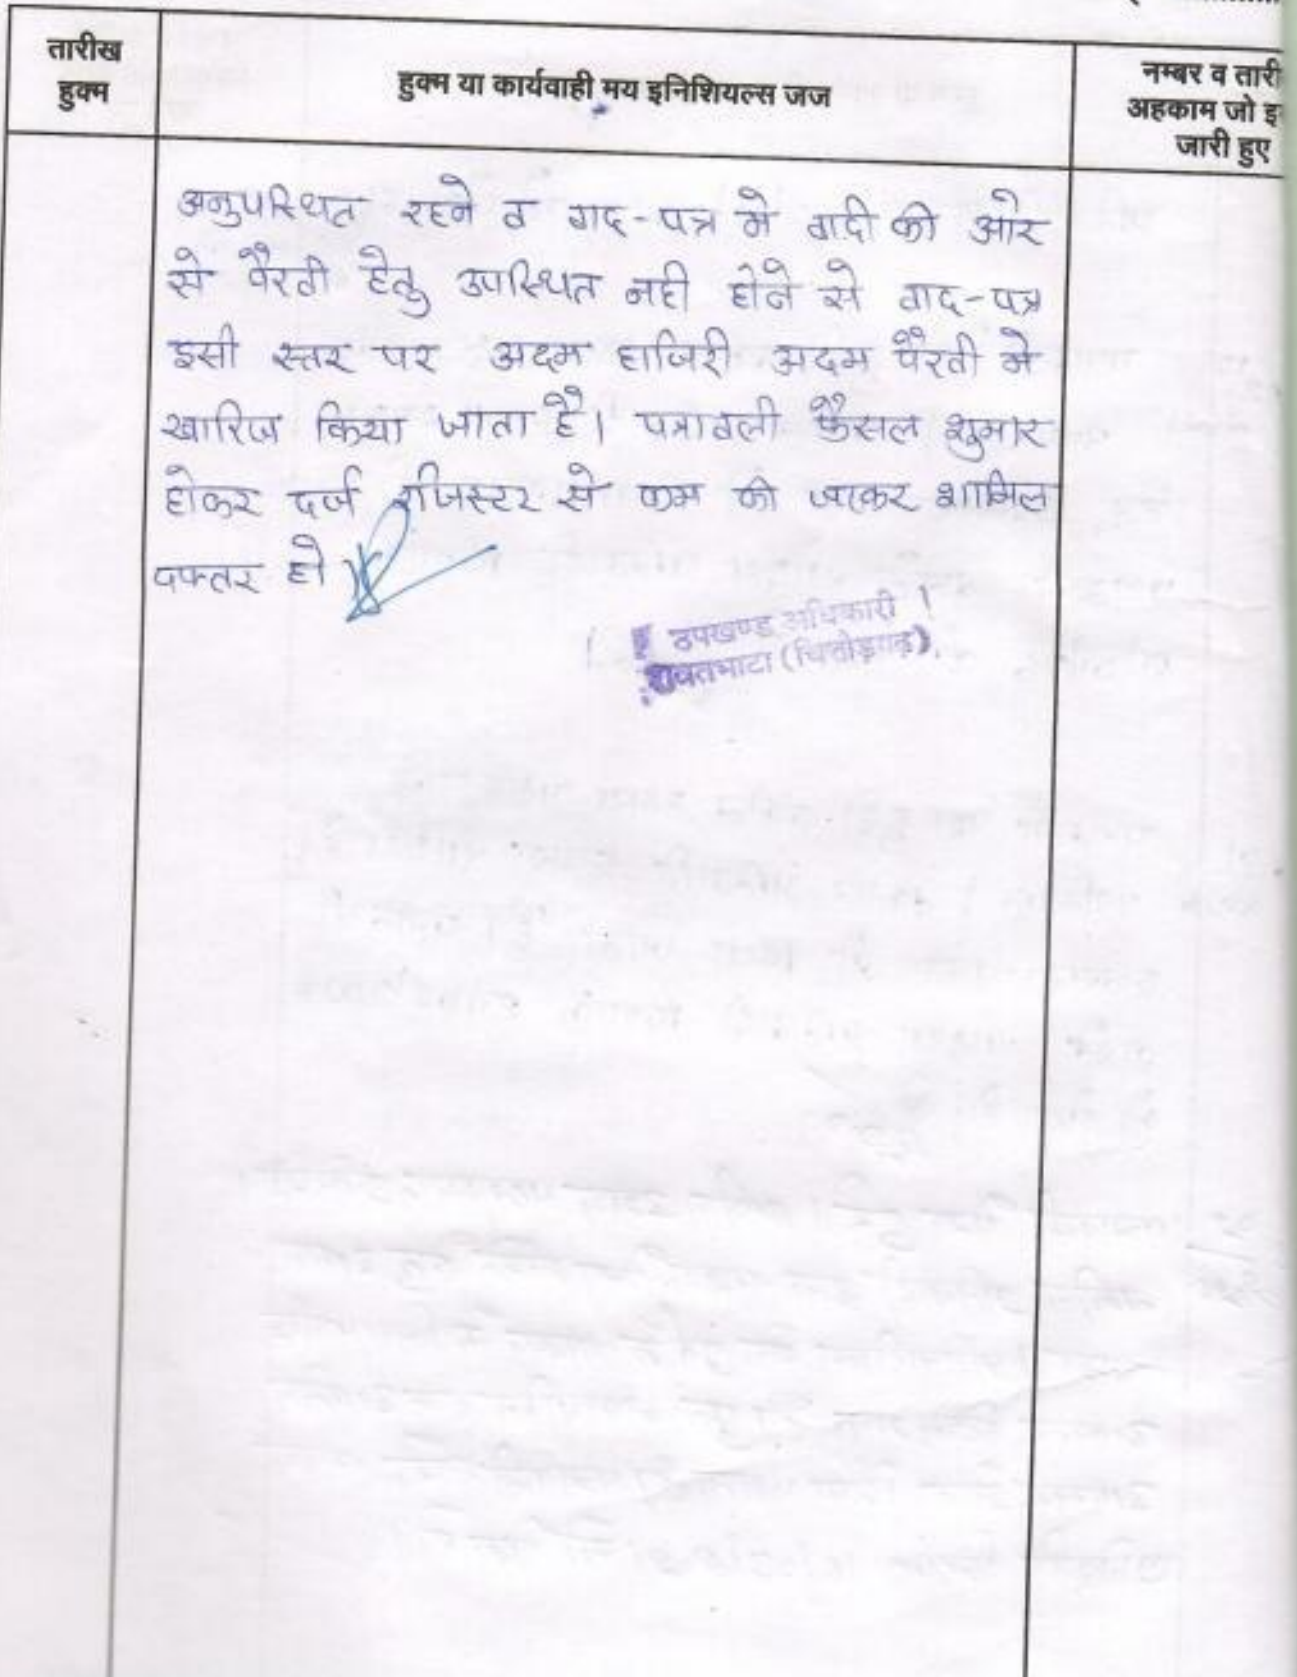 तारीख
हुक्म
हुक्म या कार्यवाही मय इनिशियल्स जज
नम्बर व तारी
अहकाम जो इ
जारी हुए
अनुपस्थित रहने व वाद-पत्र मे वादी की ओर
से पैरवी हेतु उपस्थित नही होने से वाद-पत्र
इसी स्तर पर अदम हाजिरी अदम पैरवी मे
खारिज किया जाता है। पत्रावली फैसल शुमार
होकर दर्ज रजिस्टर से कम की जाकर शामिल
दफ्तर हो
उपखण्ड अधिकारी
रावतभाटा (चित्तोड़गढ़)